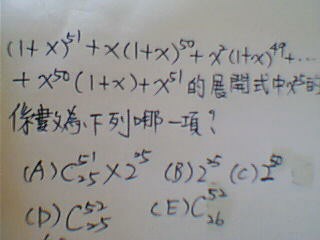 (1+x)^51 + x(1+x)^50 + x^2(1+x)^49 + ...
+ x^50 (1+x) + x^51 的展開式中x^25的
係數為下列哪一項?
(A) C^51_25 × 2^25 (B) 2^25 (C) 2^50
(D) C^52_25 (E) C^52_26